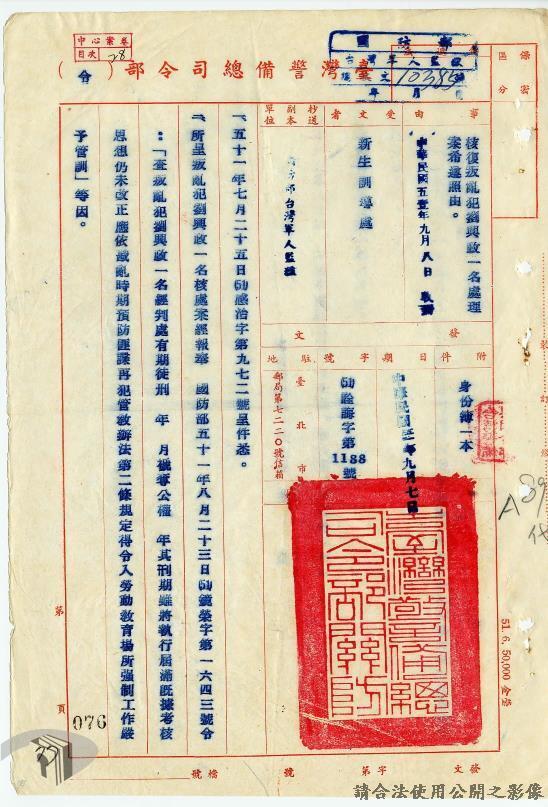 中心案卷
目次 28
臺灣警備總司令部(令)
國防部
台灣軍人監獄
文 10385 號
年 月
保密區分
事由
核復叛亂犯劉興政一名處理案希遵照由。
中華民國五壹年九月八日
受文者
新生訓導處
抄送副本單位
台灣軍人監獄
發文
附件
身份簿一本
日期
中華民國五一年九月七日
字號
(51)詮誨字第1188號
駐地
臺北市
郵局第七二二〇號信箱
臺灣警備總司令部關防
一、五十一年七月二十五日(51)感治字第九七二號呈件悉。
二、所呈叛亂犯劉興政一名核處案經報奉 國防部五十一年八月二十三日(51)鏡榮字第一六四三號令
:「查叛亂犯劉興政一名經判處有期徒刑 年 月褫奪公權 年其刑期雖將執行屆滿既據考核
思想仍未改正應依戡亂時期預防匪諜再犯管教辦法第二條規定得令入勞動教育場所強制工作嚴
予管訓」等因。
51. 6. 50,000
第 頁
076
39
發文 字第 號 檔號
請合法使用公開之影像